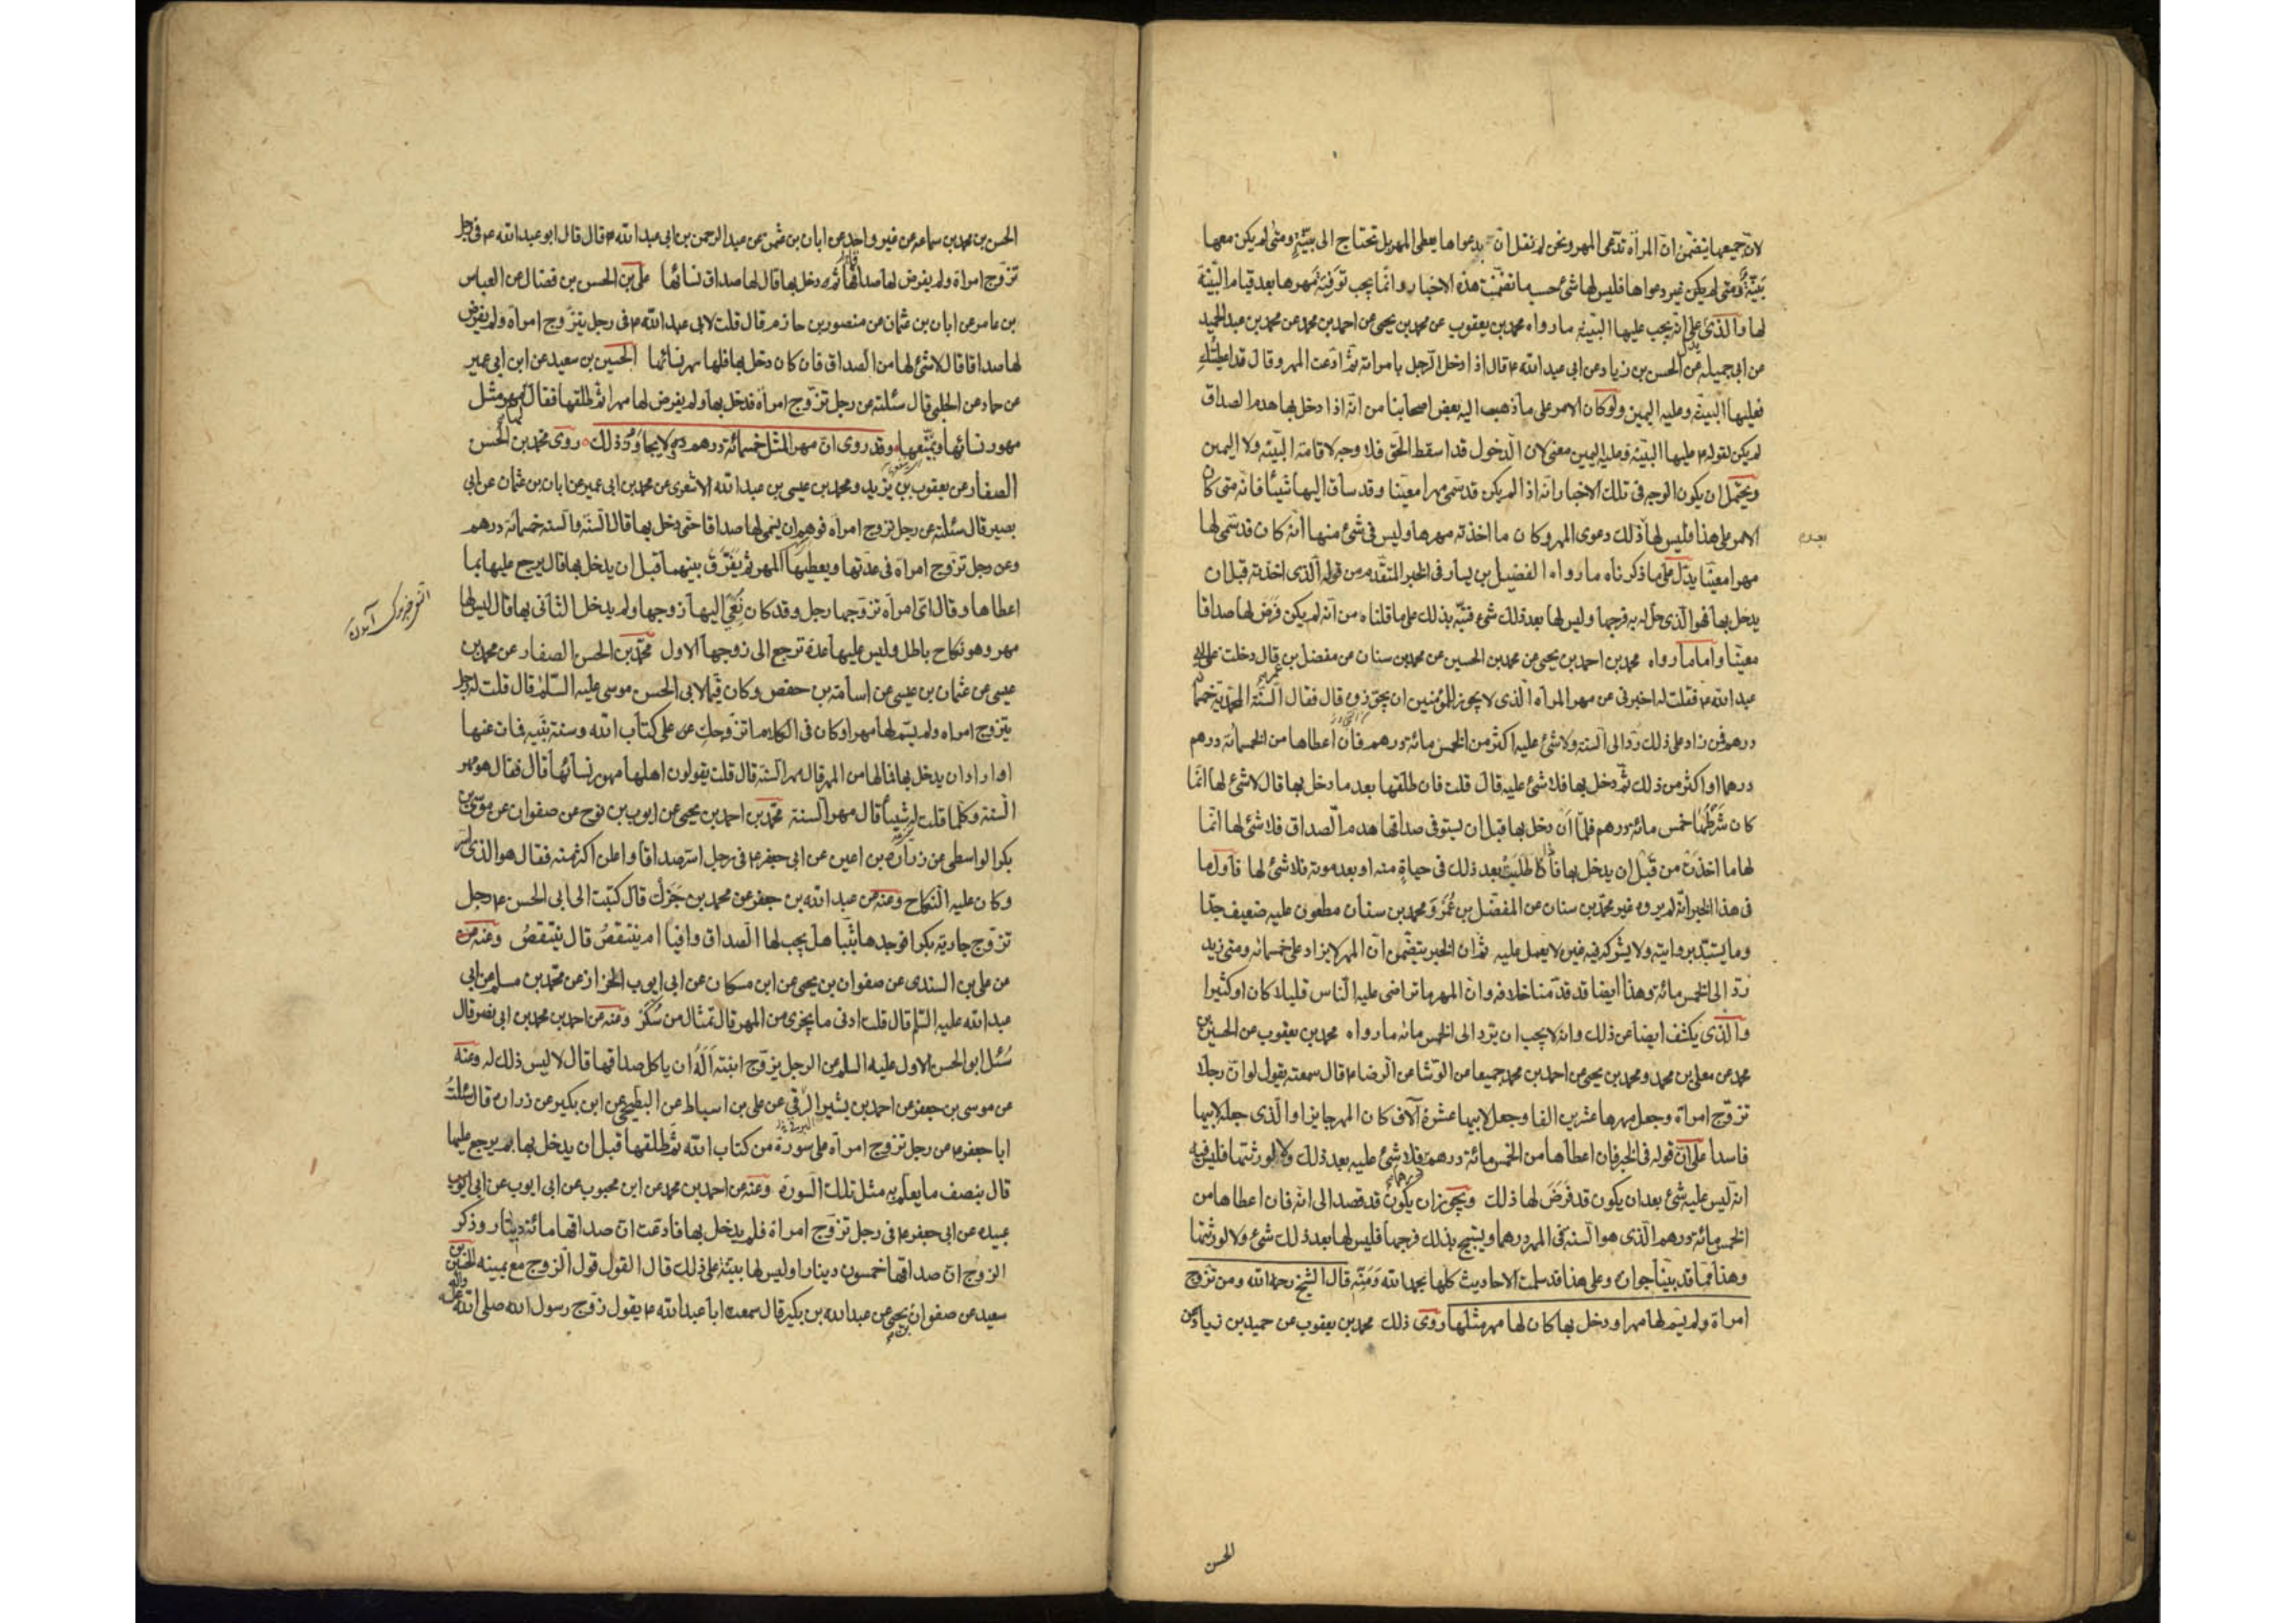 لان جميعها يتضمن ان المرأة تدعى المهر ونحن لم نقل ان بدعواها يعطى المهر بل تحتاج الى بينة ومتى لم يكن معها
بينة ومتى لم يكن غير دعواها فليس لها شئ حسب ما تضمنت هذه الاخبار وانما يجب توفية مهرها بعد قيام البينة
لها والذى يدل على انه يجب عليها البينة ما رواه محمد بن يعقوب عن محمد بن يحيى عن احمد بن محمد عن محمد بن عبد الحميد
عن ابى جميله عن الحسن بن زياد عن ابى عبد الله ع قال اذا دخل الرجل بامراته ثم ادعت المهر وقال قد اعطيتك
فعليها البينة وعليه اليمين ولو كان الامر على ما ذهب اليه بعض اصحابنا من انه اذا دخل بها هدم الصداق
لم يكن لقوله ع عليها البينة وعليه اليمين معنى لان الدخول قد اسقط الحق فلا وجه لاقامة البينه ولا اليمين
ويحتمل ان يكون الوجه فى تلك الاخبار انه اذا لم يكن قد سمى مهرا معينا وقد ساق اليها شيئا فانه متى كان
الامر على هذا فليس لها ذلك دعوى المهر وكان ما اخذته مهرها وليس فى شئ منها انه كان قد سمى لها
مهرا معينا يدل على ما ذكرناه ما رواه الفضيل بن يسار فى الخبر المتقدم من قوله الذى اخذته قبل ان
يدخل بها فهو الذى حل له به فرجها وليس لها بعد ذلك شئ فنبه بذلك على ما قلناه من انه لم يكن فرض لها صداقا
معينا واما ما رواه محمد بن احمد بن يحيى عن محمد بن الحسين عن محمد بن سنان عن مفضل بن عمر قال دخلت على ابى
عبد الله ع فقلت له اخبرنى عن مهر المرأه الذى لا يجوز للمؤمنين ان يجوزوه قال فقال السنة المحمدية خمسمائة
درهم فمن زاد على ذلك رد الى السنه ولا شئ عليه اكثر من الخمس مائة درهم فان اعطاها من الخمسمائة درهم
درهما او اكثر من ذلك ثم دخل بها فلا شئ عليه قال قلت فان طلقها بعد ما دخل بها قال لا شئ لها انما
كان شرطها خمس مائة درهم فلما ان دخل بها قبل ان يستوفى صداقها هدم الصداق فلا شئ لها انما
لها ما اخذت من قبل ان يدخل بها فاذا طلبت بعد ذلك فى حياة منه او بعد موته فلا شئ لها فاول ما
فى هذا الخبر انه لم يروه غير محمد بن سنان عن المفضل بن عمر ومحمد بن سنان مطعون عليه ضعيف جدا
وما يستبد بروايته ولا يشركه فيه غيره لا يعمل عليه ثم ان الخبر يتضمن ان المهر لا يزاد على خمسمائه ومتى زيد
رد الى الخمس مائة وهذا ايضا قد قدمنا خلافه وان المهر ما تراضى عليه الناس قليلا كان او كثيرا
والذى يكشف ايضا عن ذلك وانه لا يجب ان يرد الى الخمس مائه ما رواه محمد بن يعقوب عن الحسين بن
محمد عن معلى بن محمد ومحمد بن يحيى عن احمد بن محمد جميعا عن الوشا عن الرضا ع قال سمعته يقول لو ان رجلا
تزوج امرأة وجعل مهرها عشرين الفا وجعل لابيها عشرة آلاف كان المهر جايزا والذى جعله لابيها
فاسدا على ان قوله فى الخبر فان اعطاها من الخمس مائة درهم درهما فلا شئ عليه بعد ذلك ولا لورثتها فليس فيه
انه ليس عليه شئ بعد ان يكون قد فرض لها ذلك ويجوز ان يكون قد قصد الى انه فان اعطاها من
الخمس مائة درهم الذى هو السنه فى المهر درهما ويستبيح بذلك فرجها فليس لها بعد ذلك شئ ولا لورثتها
وهذا مما قد بينا جوازه وعلى هذا قد سلمت الاحاديث كلها بحمد الله ومنه قال الشيخ رحمه الله ومن تزوج
امراة ولم يسم لها مهرا ودخل بها كان لها مهر مثلها روى ذلك محمد بن يعقوب عن حميد بن زياد عن
الحسن
الحسن بن محمد بن سماعة عن غير واحد عن ابان بن عثمن عن عبد الرحمن بن ابى عبد الله ع قال قال ابو عبد الله ع فى رجل
تزوج امراة ولم يفرض لها صداقها ثم دخل بها قال لها صداق نسائها على بن الحسن بن فضال عن العباس
بن عامر عن ابان بن عثمان عن منصور بن حازم قال قلت لابى عبد الله ع فى رجل يتزوج امرأة ولم يفرض
لها صداقا قال لا شئ لها من الصداق فان كان دخل بها فلها مهر نسائها الحسين بن سعيد عن ابن ابى عمير
عن حماد عن الحلبى قال سئلته عن رجل تزوج امرأة فدخل بها ولم يفرض لها مهرا ثم طلقها فقال لها مهر مثل
مهور نسائها ويمتعها وقد روى ان مهر المثل خمسمائة درهم ولا يجاوز ذلك روى محمد بن الحسن
الصفار عن يعقوب بن يزيد ومحمد بن عيسى بن عبد الله الاشعرى عن محمد بن ابى عمير عن ابان بن عثمان عن ابى
بصير قال سئلته عن رجل تزوج امرأة فوهم ان يسمى لها صداقا حتى دخل بها قال السنة والسنه خمسمائة درهم
وعن رجل تزوج امراة فى عدتها ويعطيها المهر ثم يفرق بينهما قبل ان يدخل بها قال يرجع عليها بما
اعطاها وقال اى امرأة تزوجها رجل وقد كان نعى اليها زوجها ولم يدخل الثانى بها قال ليس لها
مهر وهو نكاح باطل وليس عليها عدة ترجع الى زوجها الاول محمد بن الحسن الصفار عن محمد بن
عيسى عن عثمان بن عيسى عن اسامة بن حفص وكان قيما لابى الحسن موسى عليه السلم قال قلت له رجل
يتزوج امراه ولم يسم لها مهرا وكان فى الكلام اتزوجك على كتاب الله وسنة نبيه فمات عنها
او اراد ان يدخل بها فما لها من المهر قال مهر السنة قال قلت يقولون اهلها مهور نسائها قال فقال هو مهر
السنة وكلما قلت له شيئا قال مهر السنة محمد بن احمد بن يحيى عن ايوب بن نوح عن صفوان عن موسى بن
بكر الواسطى عن زرارة بن اعين عن ابى جعفر ع فى رجل اسر صداقا واعلن اكثر منه فقال هو الذى اسر
وكان عليه النكاح وعنه عن عبد الله بن جعفر عن محمد بن جزك قال كتبت الى ابى الحسن ع رجل
تزوج جارية بكرا فوجدها ثيبا هل يجب لها الصداق وافيا ام ينتقص قال ينتقص وعنه
عن على بن السندى عن صفوان بن يحيى عن ابن مسكان عن ابى ايوب الخزاز عن محمد بن مسلم عن ابى
عبد الله عليه السلم قال قلت ادنى ما يجزى من المهر قال تمثال من سكر وعنه عن احمد بن محمد بن ابى نصر قال
سئل ابو الحسن الاول عليه السلم عن الرجل يزوج ابنته أله ان ياكل صداقها قال لا ليس ذلك له وعنه
عن موسى بن جعفر عن احمد بن بشير الرقى عن على بن اسباط عن البطيخى عن ابن بكير عن زرارة قال سئلت
ابا جعفر ع عن رجل تزوج امرأة على سورة من كتاب الله ثم طلقها قبل ان يدخل بها بم يرجع عليها
قال بنصف ما يعلم به مثل تلك السورة وعنه عن احمد بن محمد عن ابن محبوب عن ابى ايوب عن ابى
عبيده عن ابى جعفر ع فى رجل تزوج امراة فلم يدخل بها فادعت ان صداقها مائة دينار وذكر
الزوج ان صداقها خمسون دينارا وليس لها بينة على ذلك قال القول قول الزوج مع يمينه الحسين بن
سعيد عن صفوان بن يحيى عن عبد الله بن بكير قال سمعت ابا عبد الله ع يقول زوج رسول الله صلى الله عليه وآله